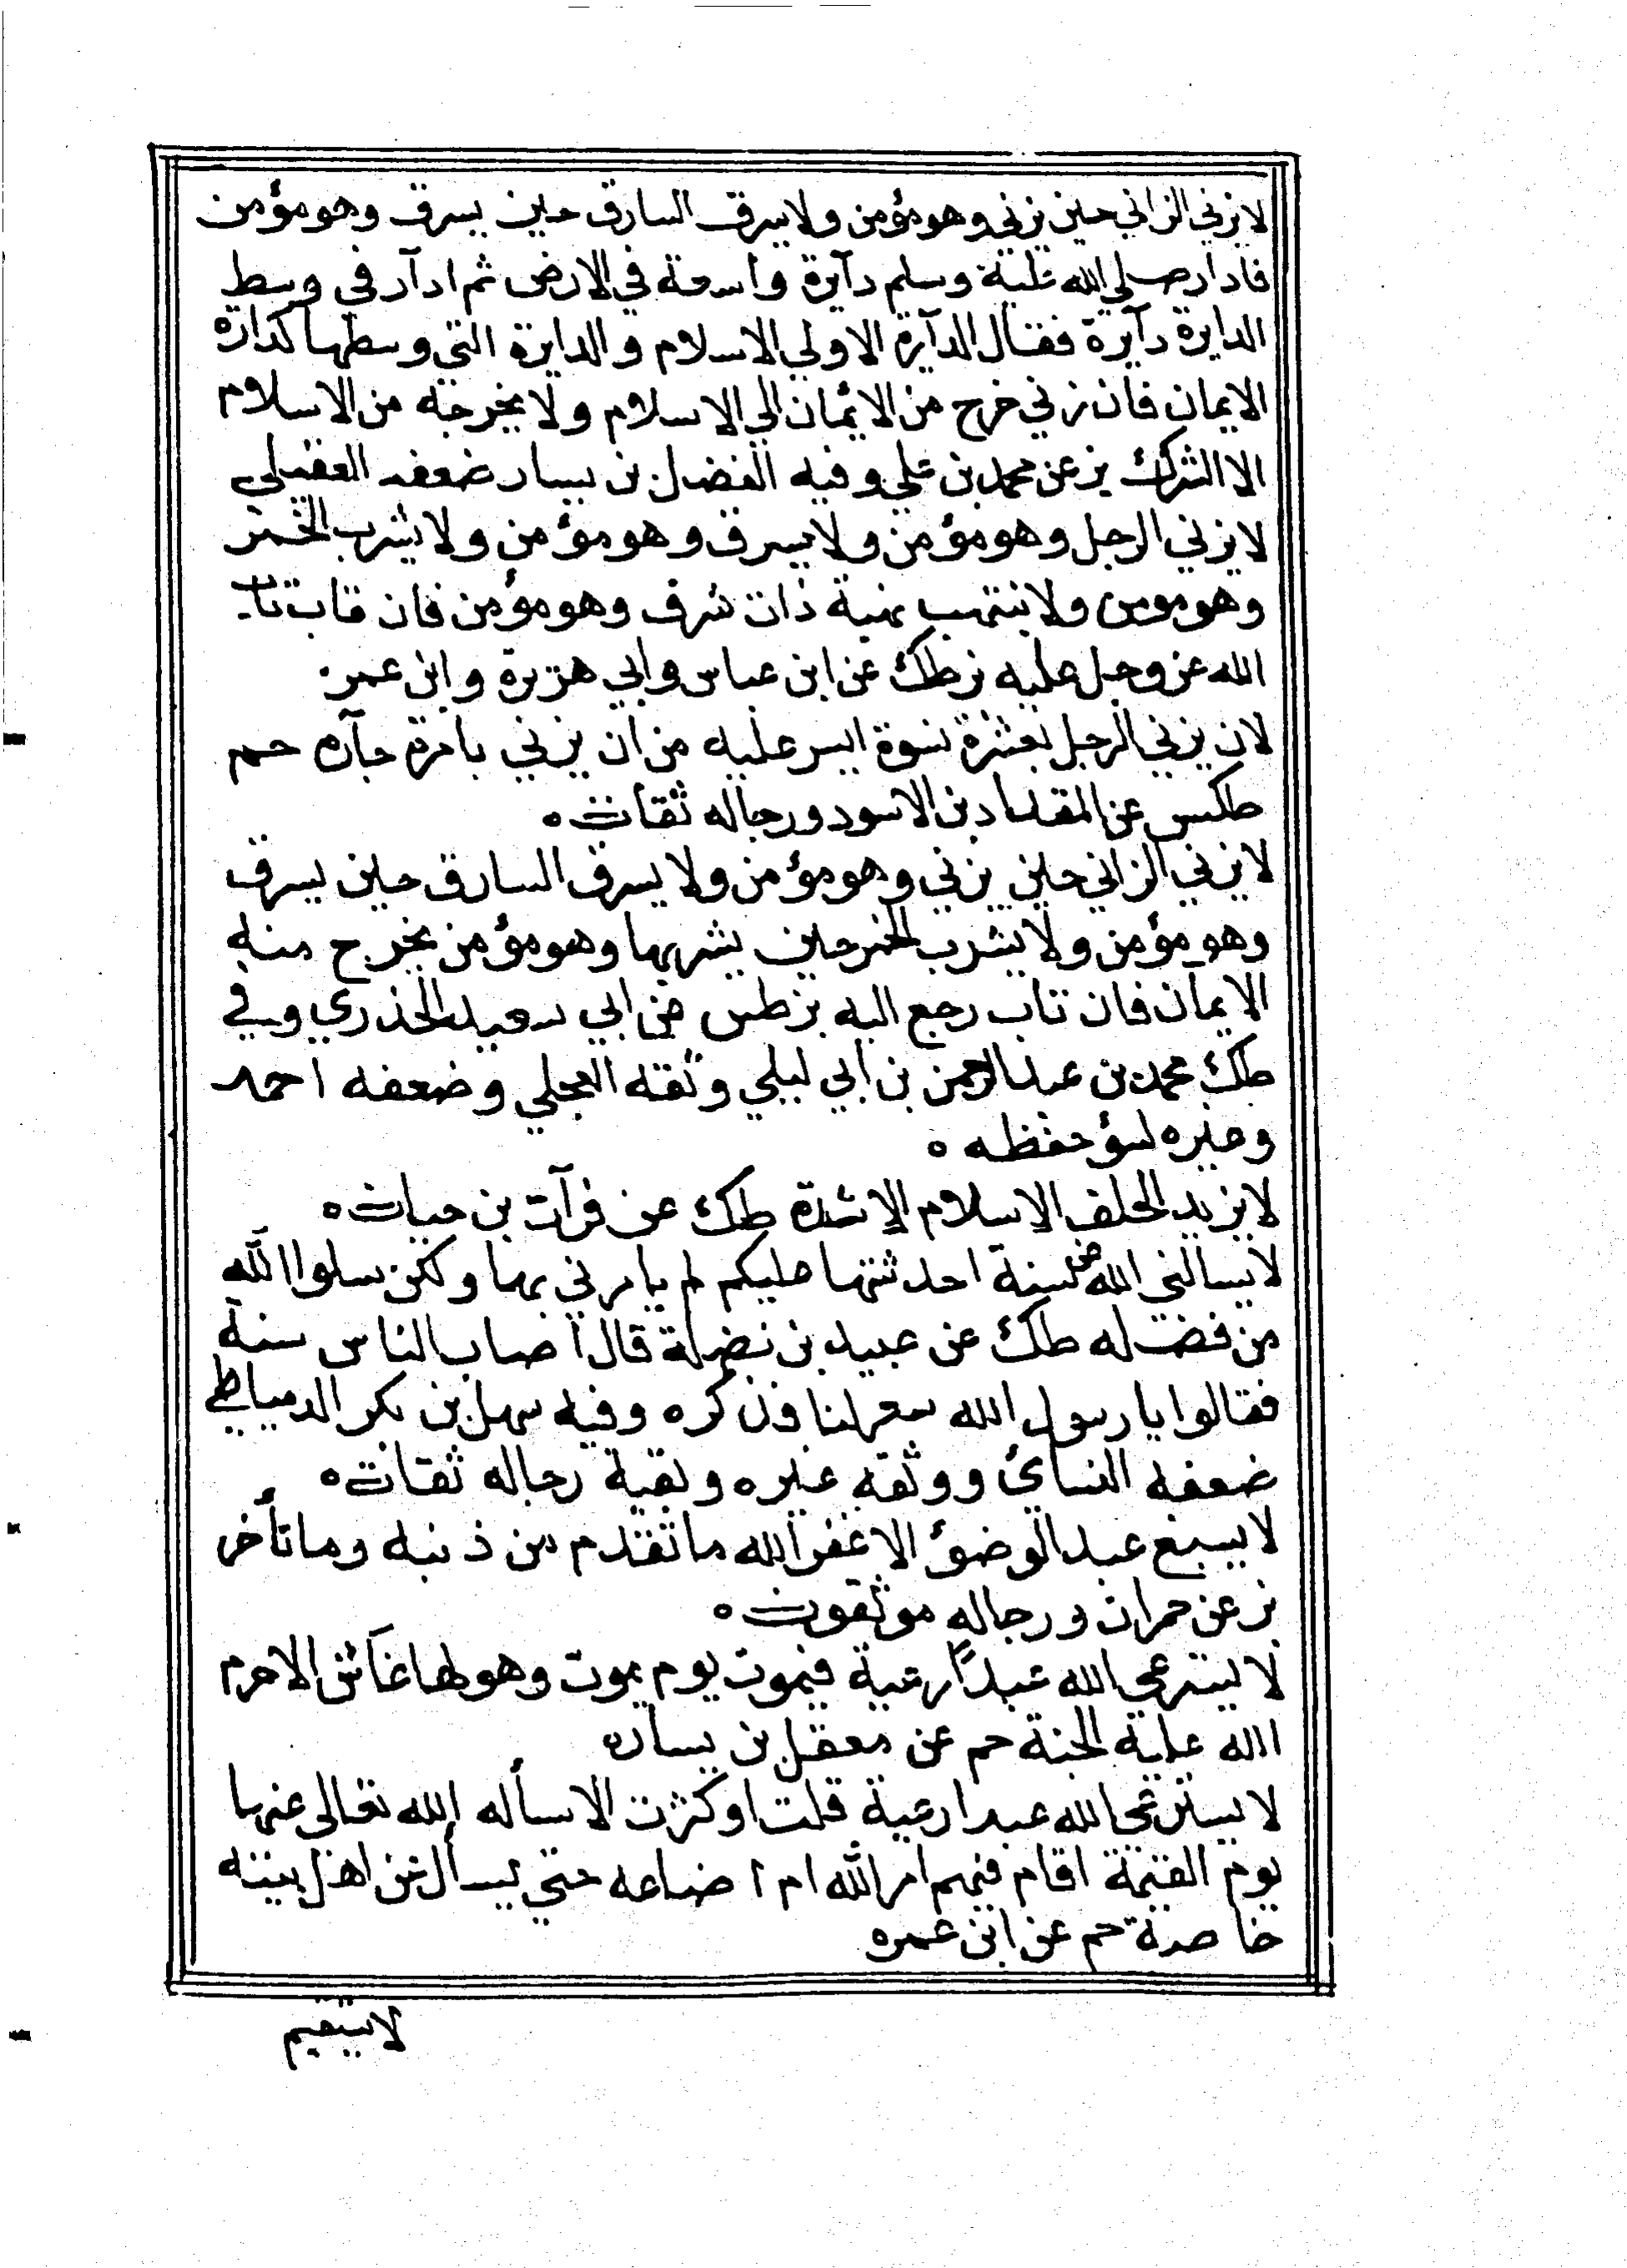 لا يزني الزاني حين يزني وهو مؤمن ولا يسرق السارق حين يسرق وهو مؤمن
فادار صلي الله علية وسلم دآيرة واسعة في الارض ثم ادآر في وسط
الدايرة دآيرة فقال الدآيرة الاولي الاسلام والدايرة التي وسطها كداره
الايمان فان زني خرج من الايمان الي الاسلام ولا يخرجه من الاسلام
الا الشرك بز عن محمد بن علي وفيه الفضل بن يسار ضعفه العقيلي
لا يزني الرجل وهو مؤمن ولا يسرق وهو مؤمن ولا يشرب الخمر
وهو مومن ولا ينتهب نهبة ذات شرف وهو مؤمن فان تاب تاب
الله عز وجل عليه بز طك عن ابن عباس وابي هريرة وابن عمر
لان يزني الرجل بعشرة نسوة ايسر عليه من ان يزني بامرة جآره حم
طكس عن المقداد بن الاسود ورجاله ثقات ه
لا يزني الزاني حين يزني وهو مؤمن ولا يسرق السارق حين يسرق
وهو مؤمن ولا يشرب الخمر حين يشربها وهو مؤمن يخرج منه
الايمان فان تاب رجع اليه بز طس عن ابي سعيد الخدري وفي
طك محمد بن عبد الرحمن بن ابي ليلي وثقه العجلي وضعفه احمد
وغيره لسؤ حفظه ه
لا يزيد الحلف الاسلام الا شدة طك عن فرآت بن حيان ه
لا يسالني الله عن سنة احدثتها عليكم لم يامرني بها ولكن سلوا الله
من فضله طك عن عبيد بن نضلة قال اصاب الناس سنة
فقالوا يا رسول الله سعر لنا فذكره وفيه سهل بن بكر الدمياطي
ضعفه النسائ ووثقه غيره وبقية رجاله ثقات ه
لا يسبغ عبد الوضؤ الا غفر الله ما تقدم من ذنبه وما تأخر
بز عن حمران ورجاله موثقون ه
لا يسترعي الله عبدًا رعية فيموت يوم يموت وهو لها غآش الا حرم
الله علية الجنة حم عن معقل بن يسار ه
لا يسترعي الله عبدا رعية قلت او كثرت الا سأله الله تعالى عنها
يوم القيمة اقام فيهم امر الله ام اضاعه حتي يسأل عن اهل بيته
خاصة حم عن ابن عمر ه
لا يستقيم